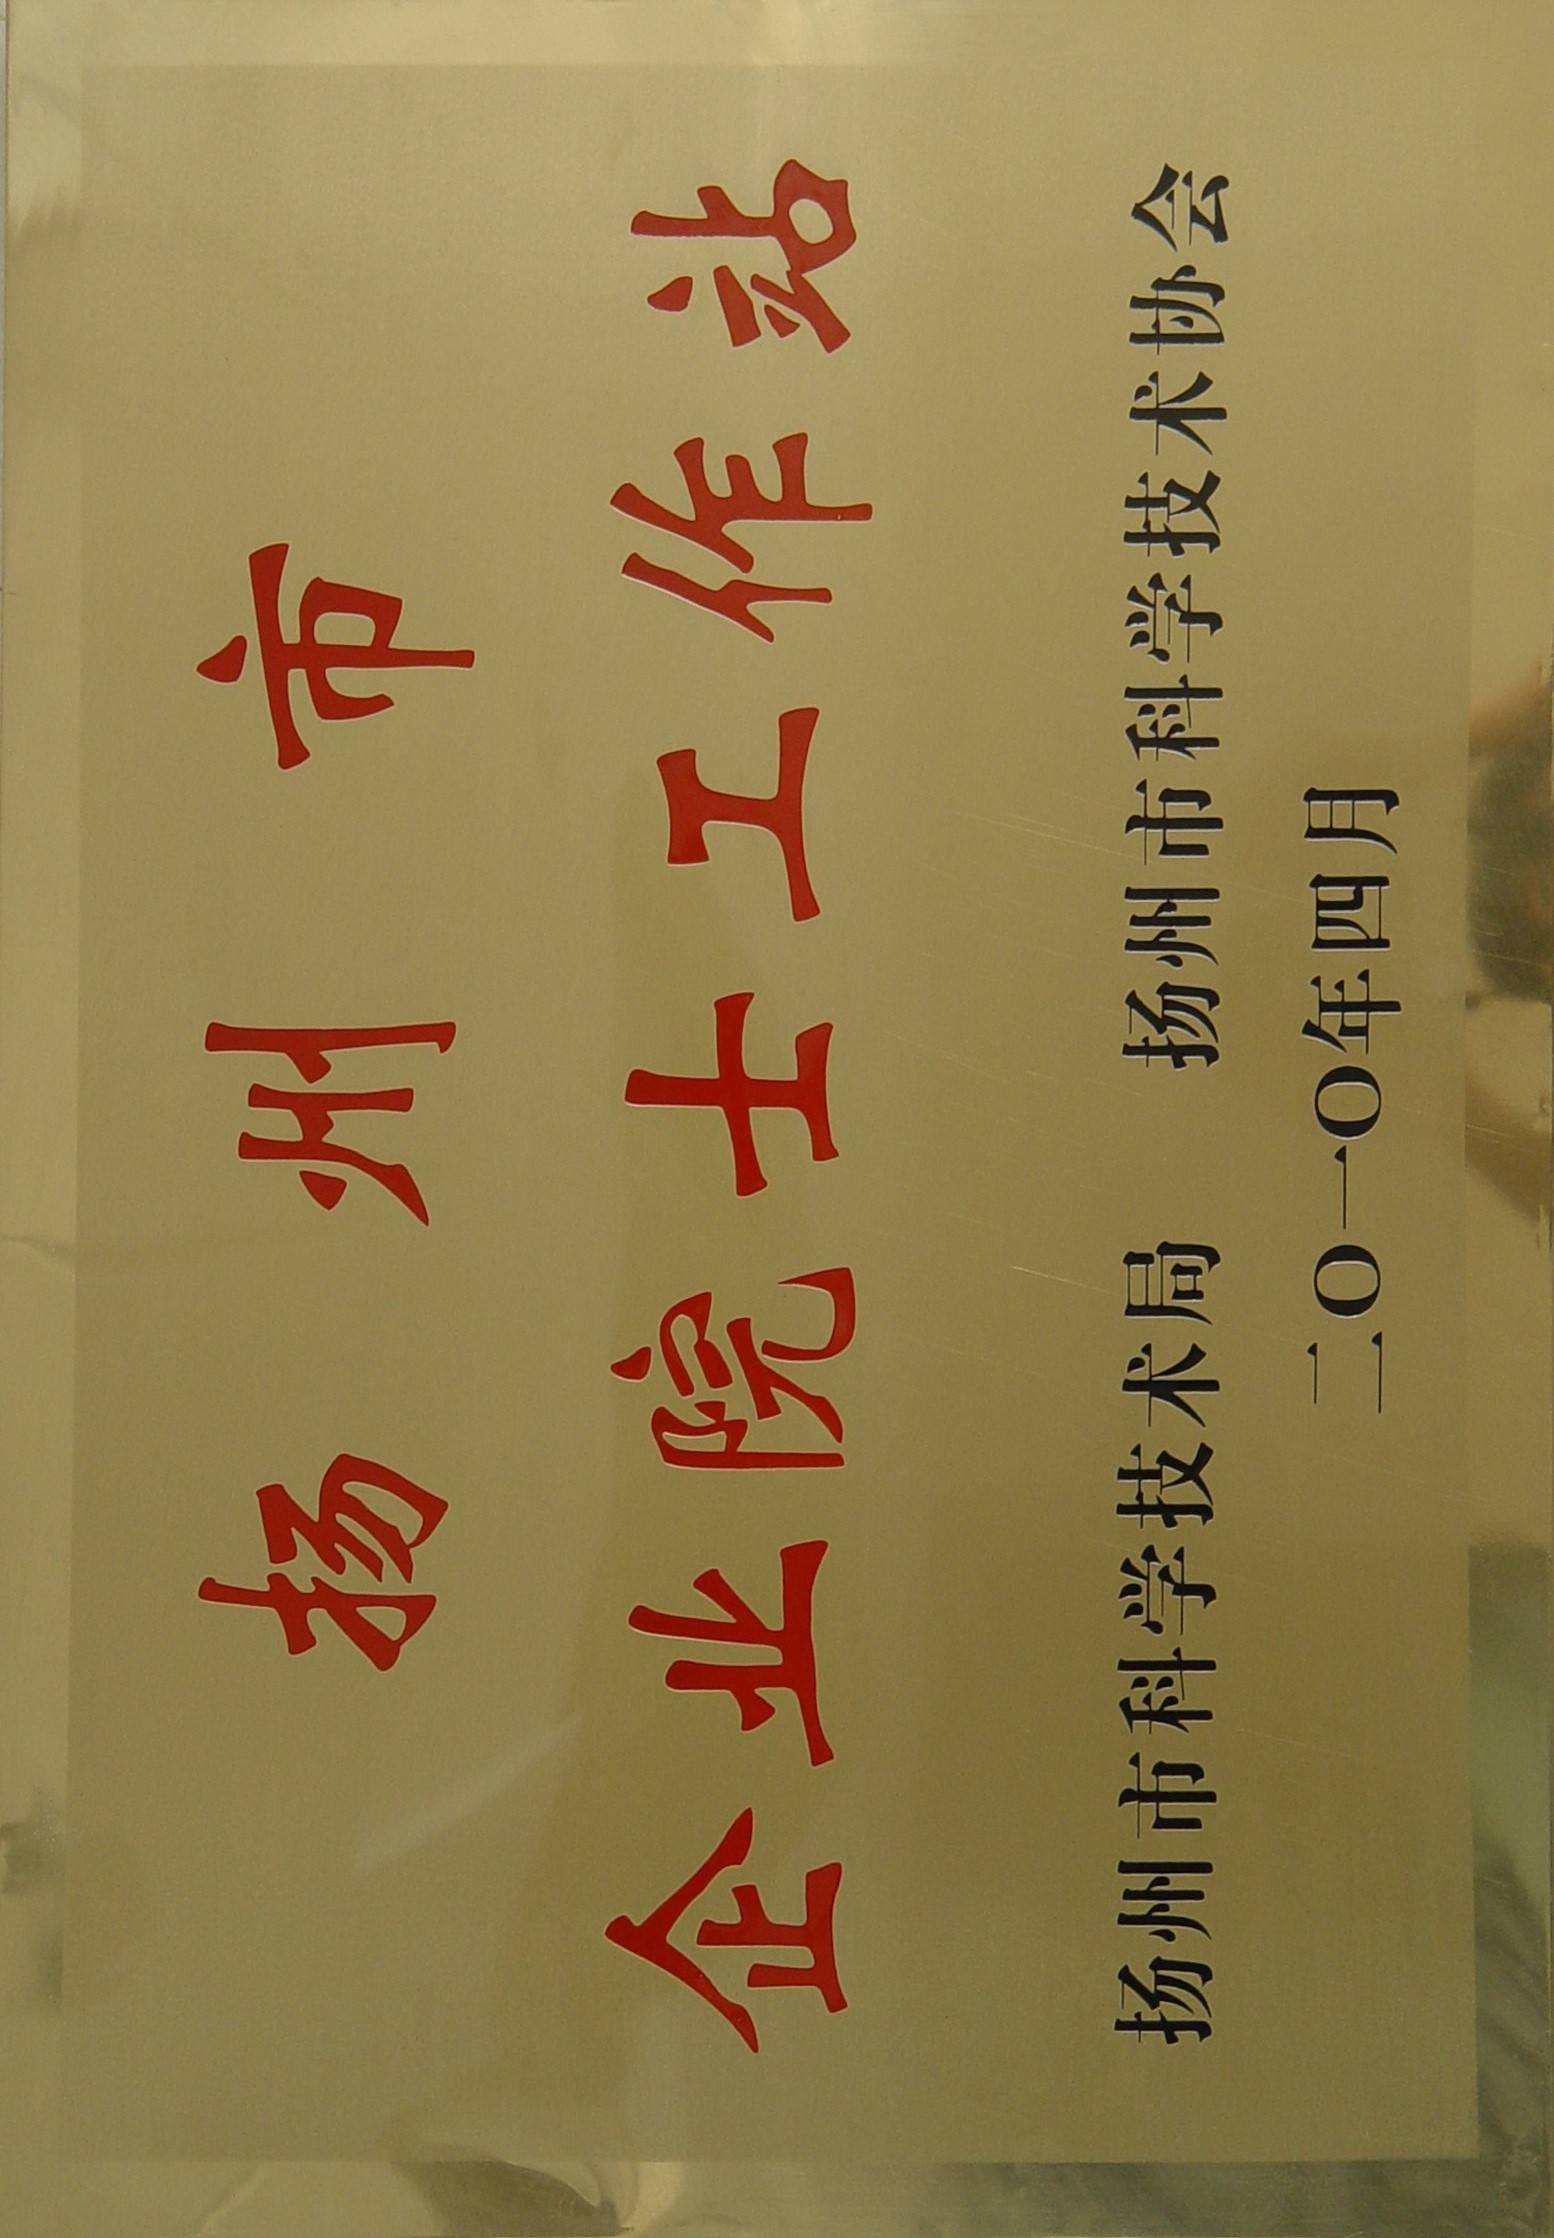 扬州市
企业院士工作站
扬州市科学技术局 扬州市科学技术协会
二〇一〇年四月